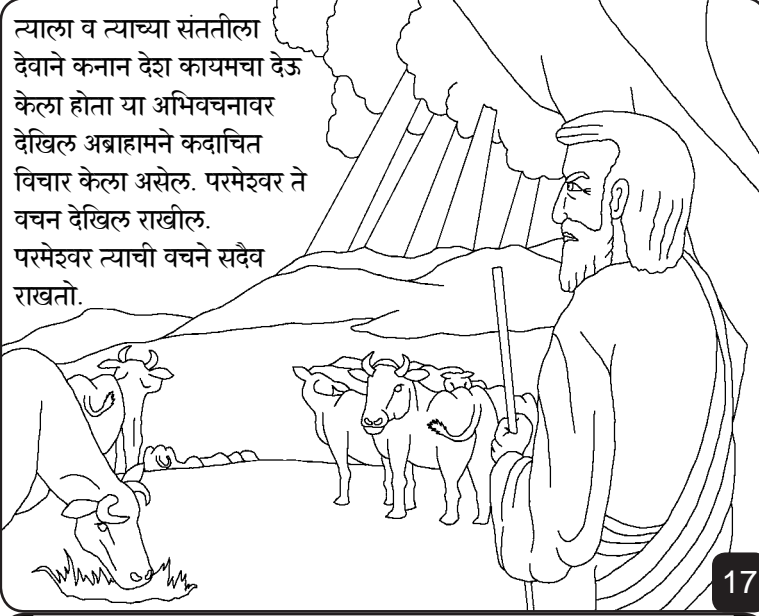 त्याला व त्याच्या संततीला
देवाने कनान देश कायमचा देऊ
केला होता या अभिवचनावर
देखिल अब्राहामने कदाचित
विचार केला असेल. परमेश्वर ते
वचन देखिल राखील.
परमेश्वर त्याची वचने सदैव
राखतो.
17